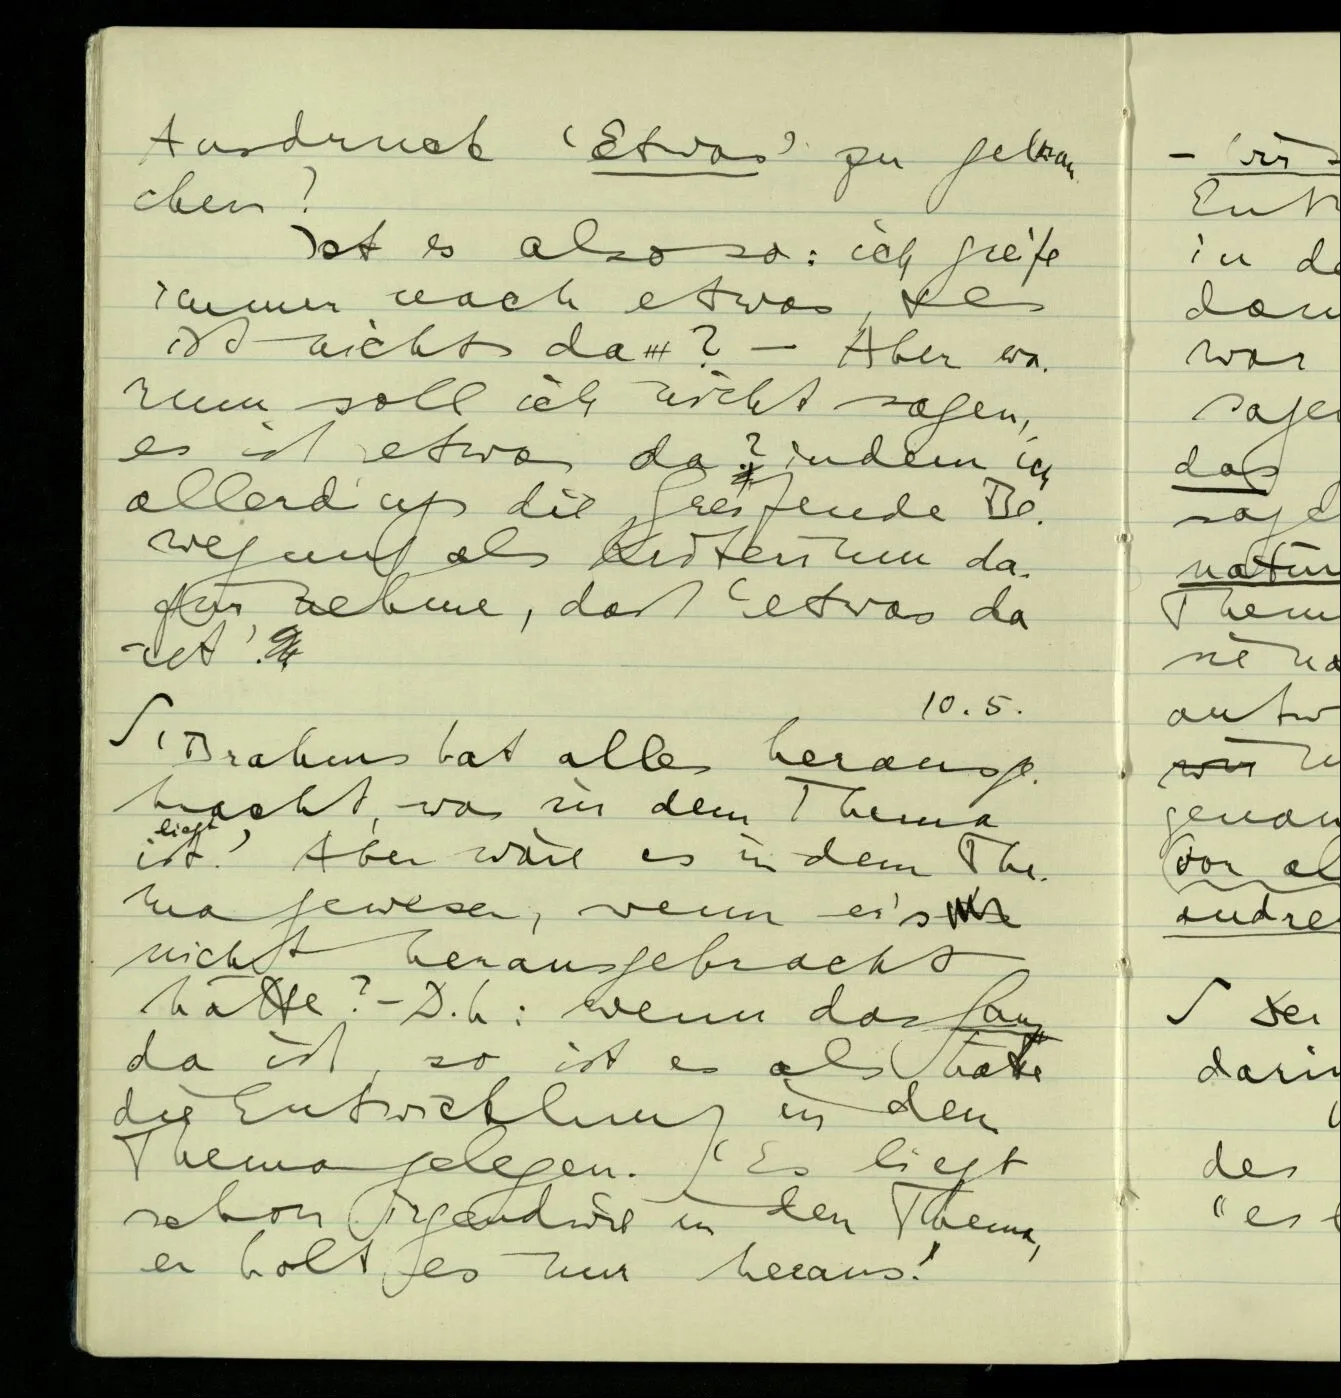 Ausdruck 'Etwas' zu gebrau
chen?
Ist es also so: ich greife
immer nach etwas, & es
ist nichts da? — Aber wa-
rum soll ich nicht sagen,
es ist etwas da? indem ich
allerdings die greifende Be-
wegung als Kriterium da-
für nehme, daß 'etwas da
ist'.
10.5.
∫ 'Brahms hat alles herausge-
bracht, was in dem Thema
liegt
ist.' Aber wäre es in dem The-
ma gewesen, wenn er's
nicht herausgebracht
hätte? – D.h.: wenn das Ganze
da ist, so ist es als hätte
die Entwicklung in dem
Thema gelegen. ∫ 'Es liegt
schon irgendwie in dem Thema,
er holt es nur heraus.'
- wir
in
war
das
sie
wir
vor
∫ Der
des
"es